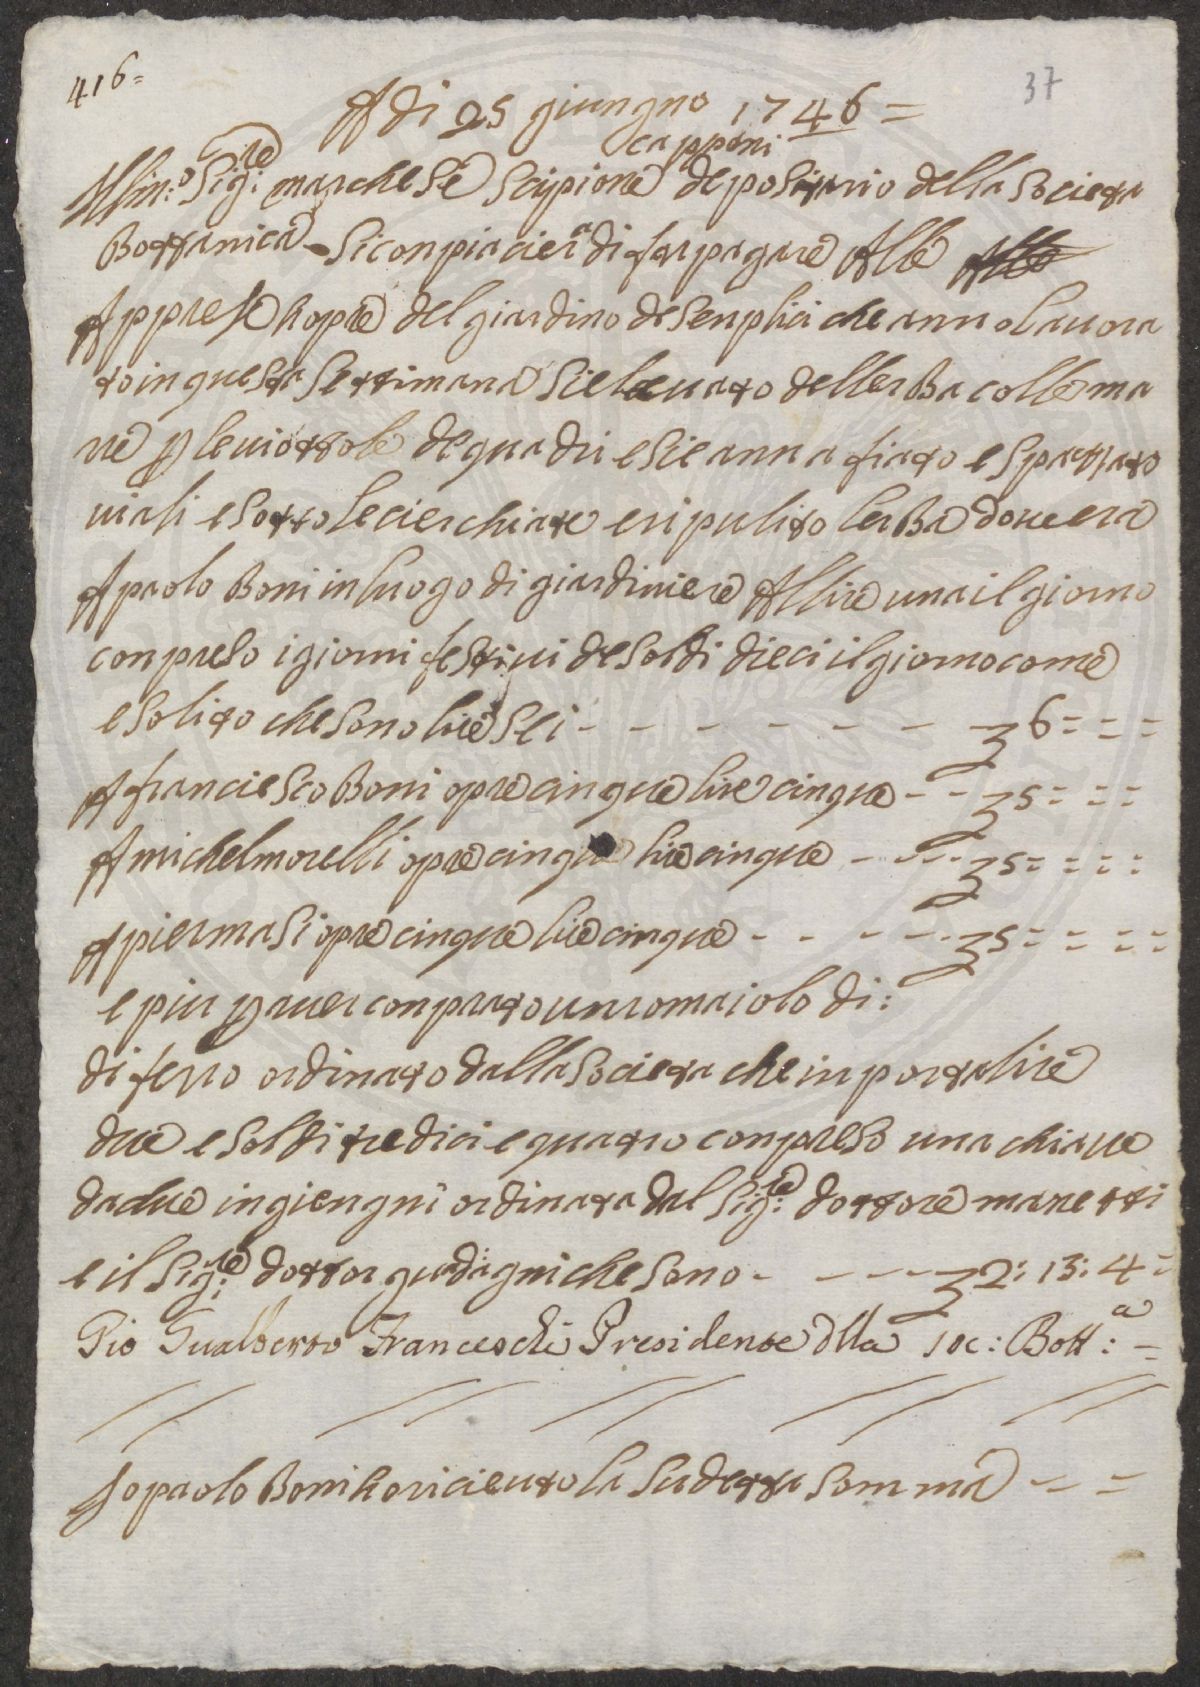 416=
37
A di 25 giungno 1746=
capponi
Illm:o Sig:re marchese Scipione depositario della Societa
Bottanica Si conpiaciera di far pagare Alle
Apprese hopre del giardino de Senplici che anno lauora
to in questa Settimana Sie leuato dellerba colle ma
ne p le uiottole de quadri e Sie annafiato e Spazzato
uiali e Sotto le cierchiate e ripulito lerba doue era
A paolo Boni in luogo di giardiniere Allire una il giorno
conpreso i giorni festiui de Soldi dieci il giorno come
e Solito che Sono lire Sei - - - - - - - 6= = =
A franciesco Boni opre cinque lire cinque - - 5= = =
A michel morelli opre cinque lire cinque - - - 5= = = =
A pier masi opre cinque lire cinque - - - - - 5= = = =
e piu p auer conprato un romaiolo di:
di ferro ordinato dalla Societa che inporta lire
due e Soldi tredici e quatro conpreso una chiaue
da due ingiengni ordinata dal Sig:re dottore manetti
e il Sig:re dottor guadagni che Sono - - - - 2: 13: 4=
Gio Gualberto Franceschi Presidente dlla Soc: Bott:a =
Io paolo Boni ho riceuto la Sudetta Somma - =